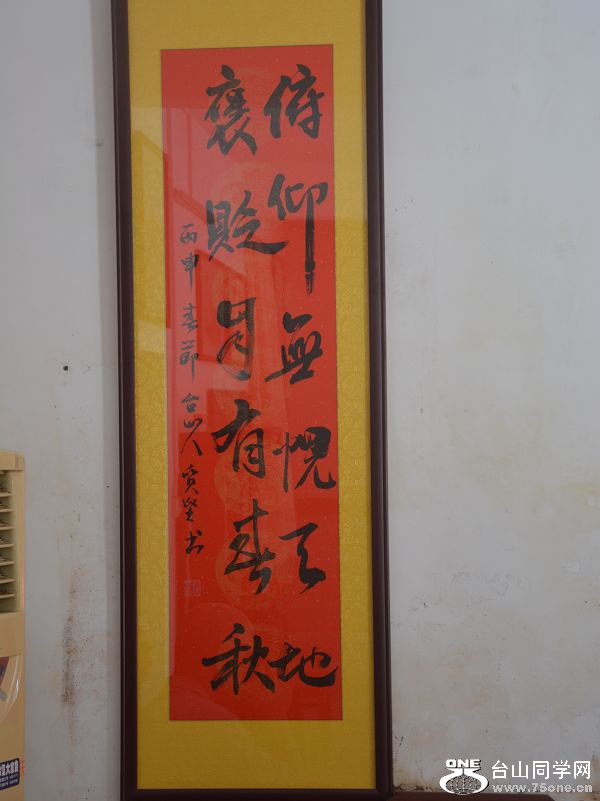 俯仰無愧天地
褒貶自有春秋
丙申春節台山人賢书
ONE 台山同学网
www.75one.cn